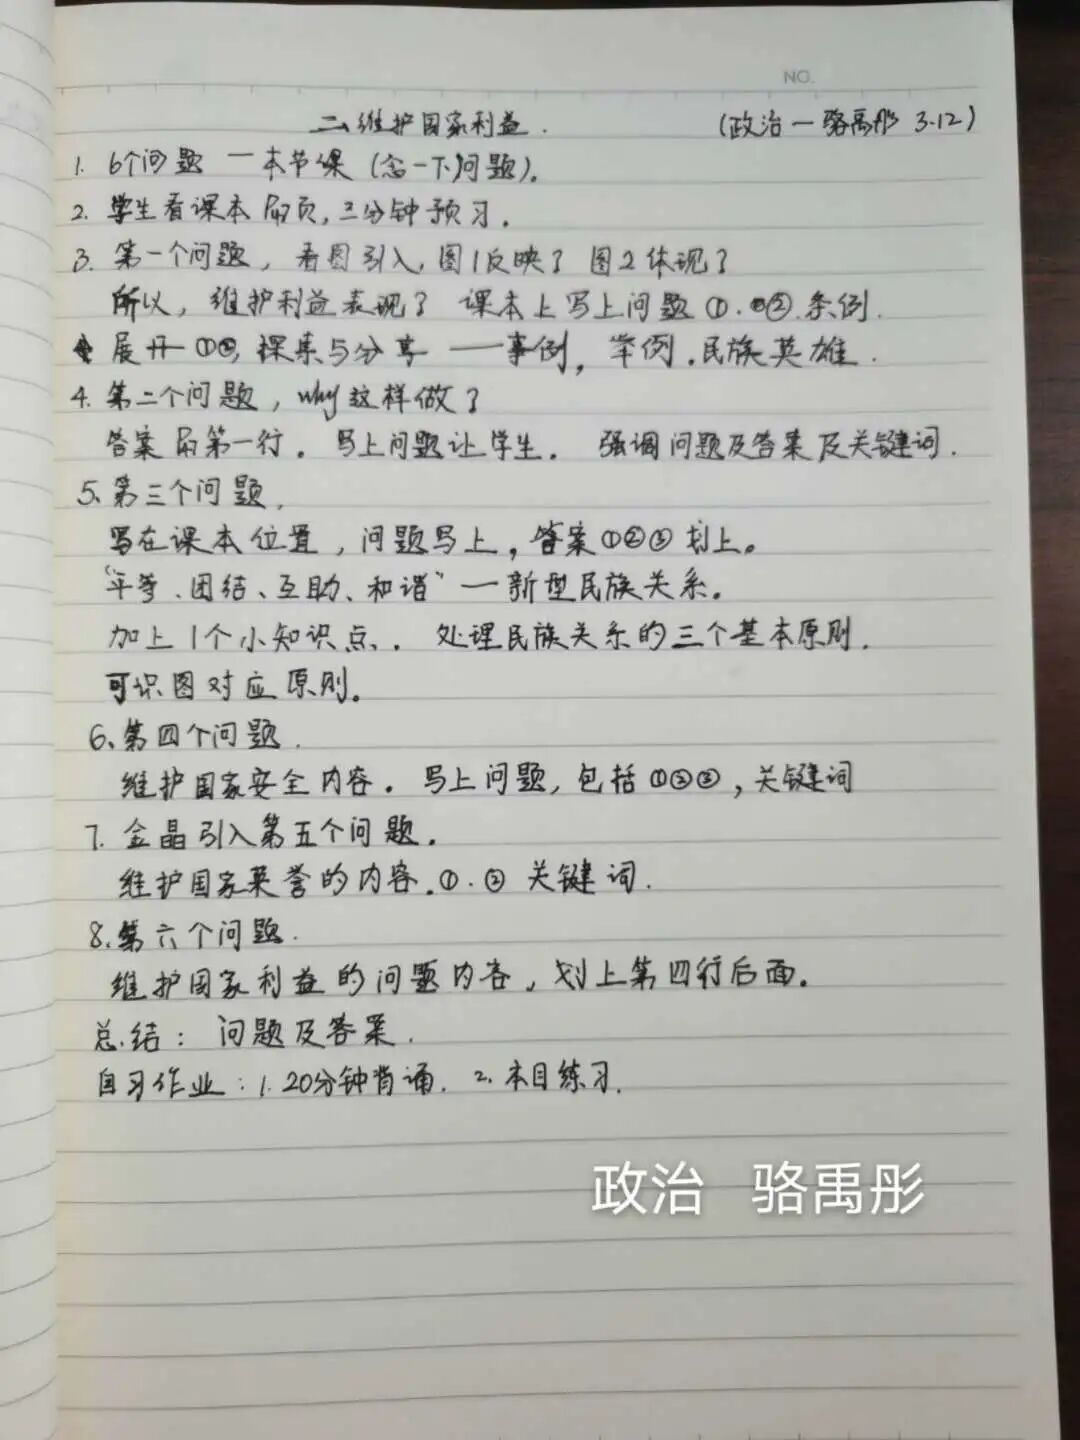 NO.
二、维护国家利益.
(政治一骆禹彤 3.12)
1. 6个问题 一本节课 (念一下问题)。
2. 学生看课本 页,二分钟预习.
3. 第一个问题, 看图引入,图1反映了 图2体现了
所以, 维护利益表现了 课本上写上问题①.②.条例.
展开①②,探索与分享 ——事例, 举例.民族英雄.
4. 第二个问题, why这样做了
答案 第一行. 写上问题让学生. 强调问题及答案及关键词.
5、第三个问题.
写在课本位置, 问题写上, 答案①②③划上。
“平等、团结、互助、和谐”一新型民族关系。
加上1个小知识点. 处理民族关系的三个基本原则.
可识图对应原则。
6、第四个问题.
维护国家安全内容. 写上问题, 包括①②③,关键词
7. 金晶引入第五个问题.
维护国家荣誉的内容.①.②关键词.
8.第六个问题.
维护国家利益的问题内容, 划上第四行后面。
总结: 问题及答案.
自习作业: 1. 20分钟背诵. 2. 本目练习.
政治 骆禹彤